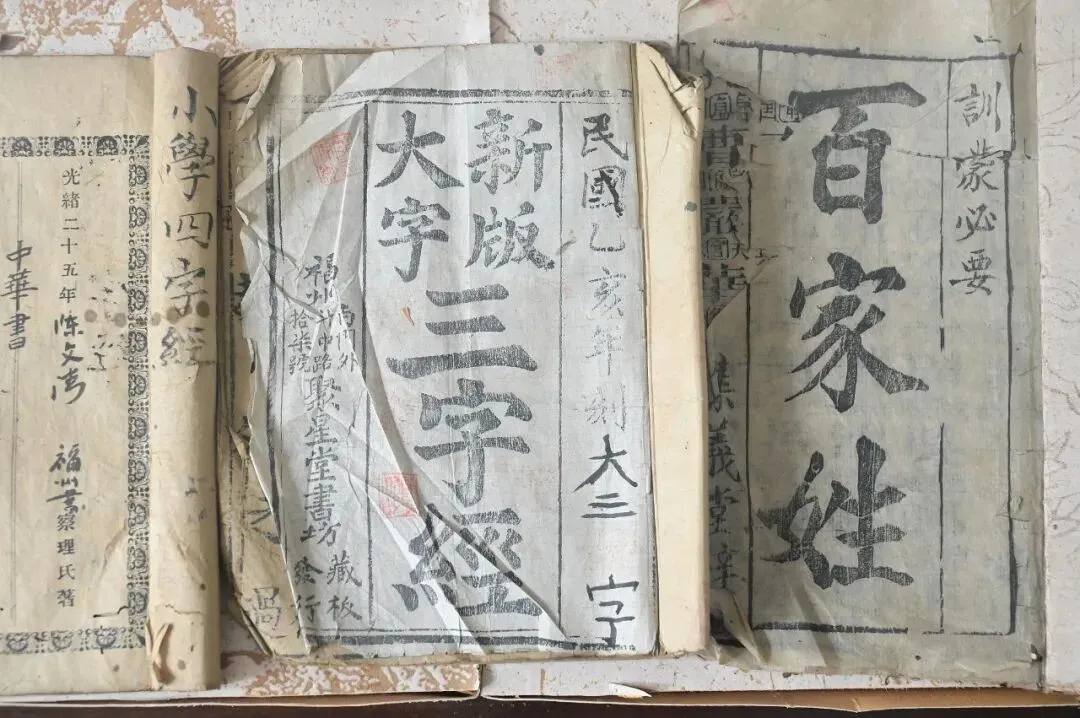 訓蒙必要
百家姓
集義堂
民國乙亥年
大三字
新版
大字
三字經
福州
南門外
斗中路
拾柒號
聚星堂書坊
藏板
發行
小學四字經
光緒二十五年
福州
察理氏著
中華書